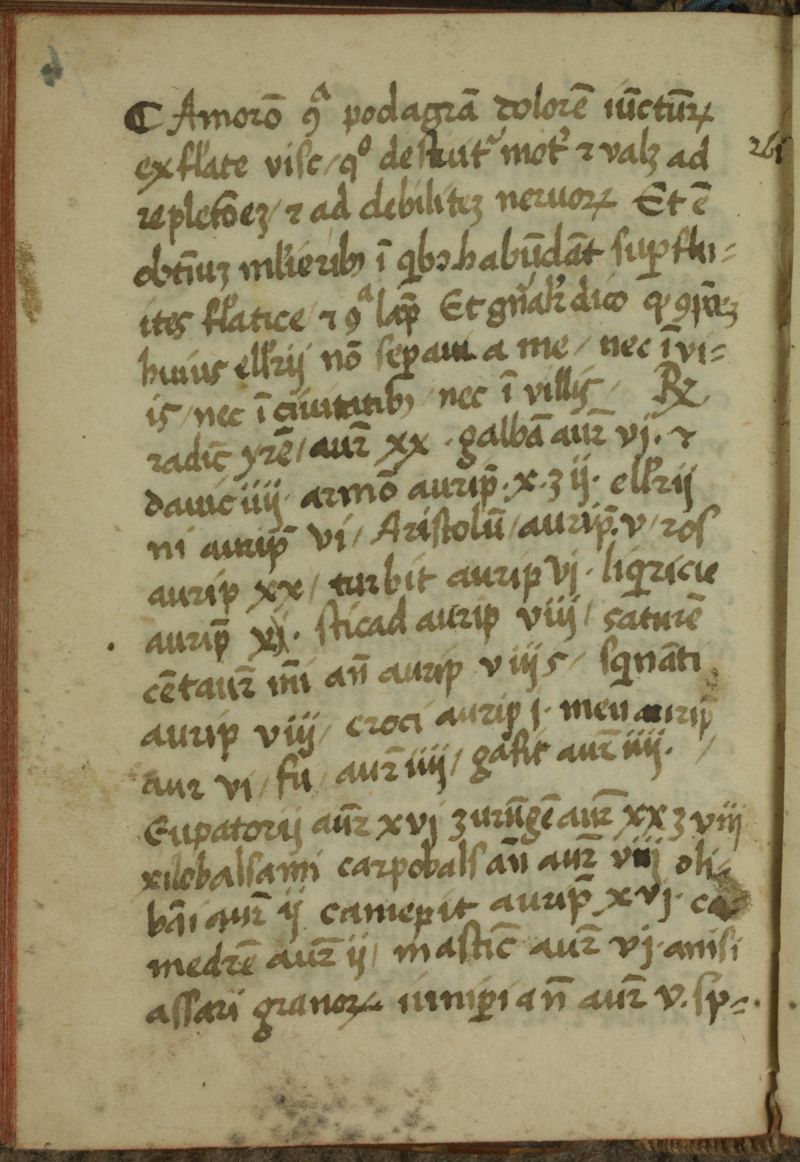 Amorō ꝯᵃ podagrā dolorē iūctūꝝ
ex flate visc / qͦ destrut᷑ mot᷑ ⁊ valꝫ ad
repletōeꝫ / ⁊ ad debilitꝫ neruoꝝ Et ē
261
mlieribꝫ ī habūdāt suꝑflui=
ites flatice / ⁊ ꝯᵃ lap̄ Et dico
huius ellrij nō seꝑaui a me / nec ī vi=
is / nec ī ciuitatibꝫ / nec ī villis / ℞
radic̄ yrē / aur̄ xx · galbā aur̄ vj · ⁊
dauic iiij · armō aurip̄ · x · ʒ ij · ellrij
ni aurip̄ vi / Aristolū / aurip̄ · v / ros
aurip xx / turbit aurip vj · liq̄ricie
aurip̄ xj · sticad aurip viij / saturē
cētaur̄ an̄ aurip viij s / sq̄nāti
aurip viij / croci aurip j · meu aurip̄
aur vi / fu / aur̄ iiij / aur̄ iiij · /
Eupatorij aūr xvj aur̄ xx ʒ viij
xilobalsami carpobals an̄ aur̄ viij oli=
bāi aur̄ ij aurip̄ xvj · ca=
medrē aur̄ ij / mastic̄ aur̄ vj · anisi
assari granoꝝ iuniꝑi an̄ aur̄ v · sp=